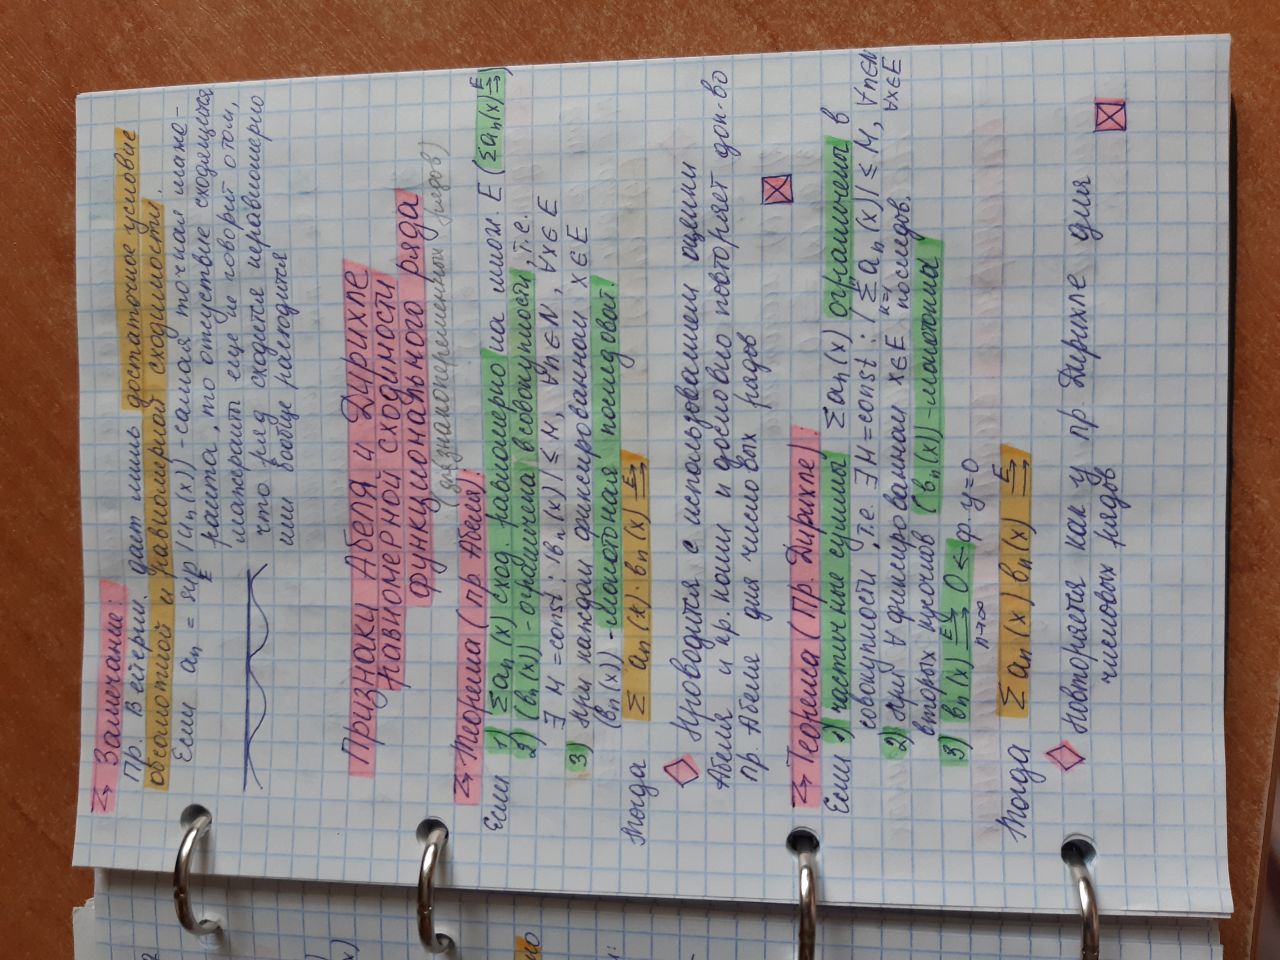 Замечание:
Пр. Вейерш. дает лишь достаточное условие
абсолютной и равномерной сходимости.
Если aₙ = sup |uₙ(x)| - самая точная мажо-
E
ранта, то отсуствие сходящейся
мажоранты еще не говорит о том,
что ряд сходится неравномерно
или вообще расходится
Признаки Абеля и Дирихле
равномерной сходимости
функционального ряда
(для знакопеременных рядов)
Теорема (пр. Абеля):
Если 1) Σaₙ(x) сход. равномерно на множ. E (Σaₙ(x) ⇉ᴱ)
2) (bₙ(x)) - ограничена в совокупности, т.е.
∃ M = const : |bₙ(x)| ≤ M, ∀n∈N, ∀x∈E
3) При каждом фиксированном x∈E
(bₙ(x)) - монотоная последоват.
Тогда Σ aₙ(x)·bₙ(x) ⇉ᴱ
Проводится с использованием оценки
Абеля и кр. Коши и дословно повторяет док-во
пр. Абеля для числовых рядов
Теорема (Пр. Дирихле):
Если 1) частичные суммы Σaₙ(x) ограничены в
совокупности, т.е. ∃M=const : |Σₖ₌₁ⁿ aₙ(x)| ≤ M, ∀n∈N
∀x∈E
2) При ∀ фиксированном x∈E последов.
вторых кусочков (bₙ(x)) - монотонна
3) bₙ(x) ⇉ᴱ 0 ← ф. y=0
n→∞
Тогда Σ aₙ(x) bₙ(x) ⇉ᴱ
Повторяется как у пр. Дирихле для
числовых рядов